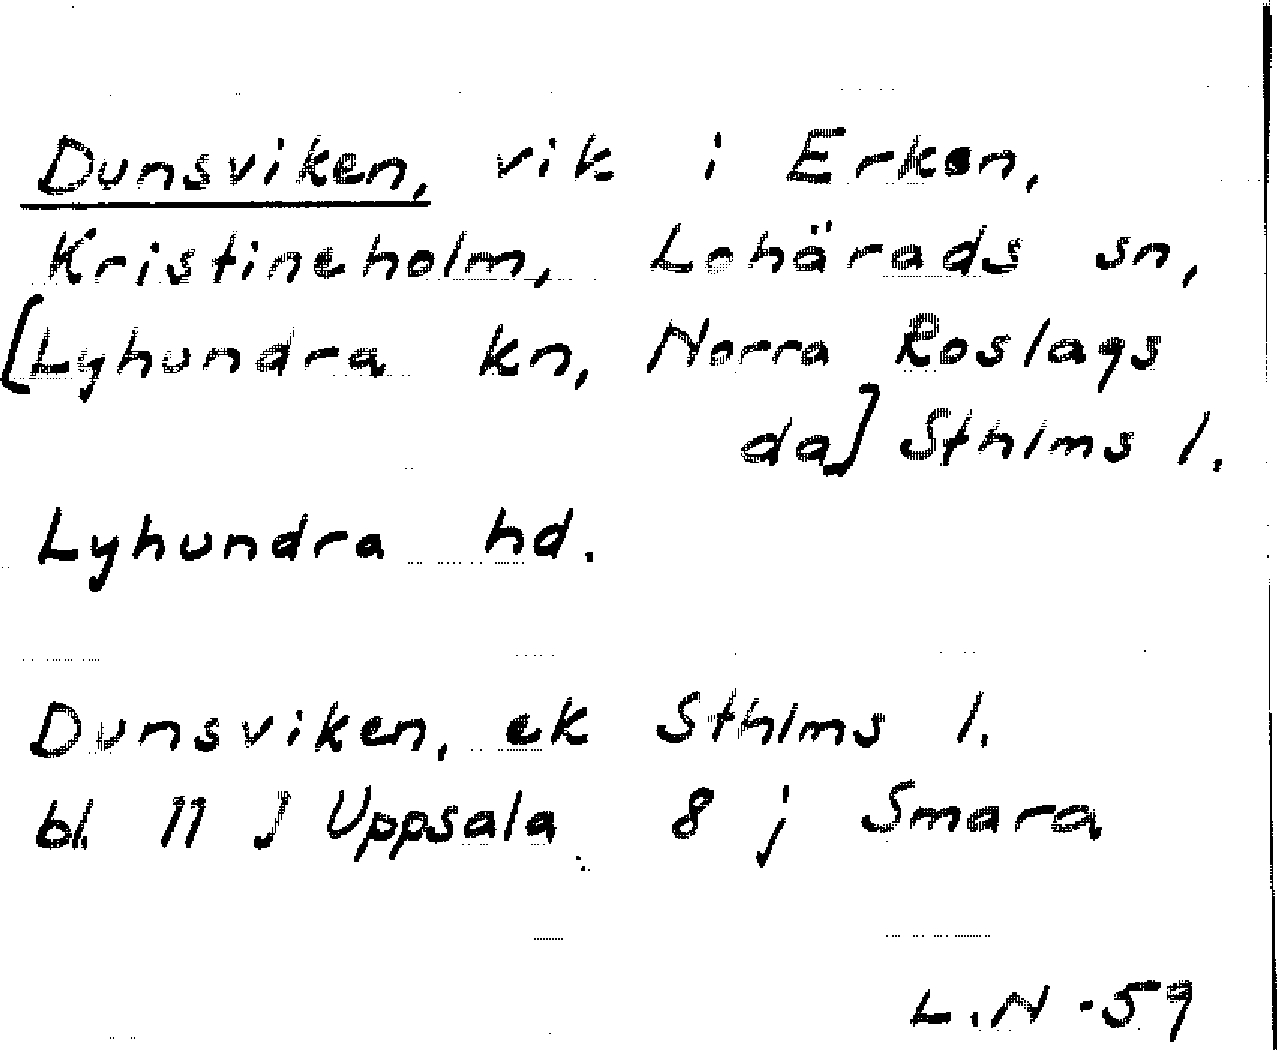 Dunsviken, vik i Erken,
Kristineholm, Lohärads sn,
[Lyhundra kn, Norra Roslags
da] Sthlms l.
Lyhundra hd.
Dunsviken, ek Sthlms l.
bl. 11 J Uppsala 8 j Smara
L.N -59